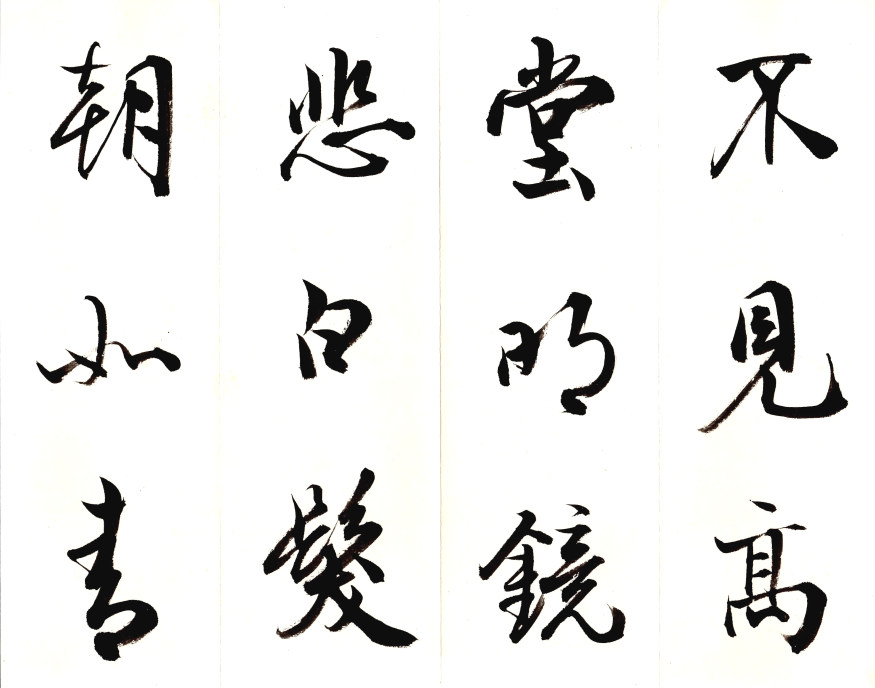 不見高
堂明鏡
悲白髮
朝如青